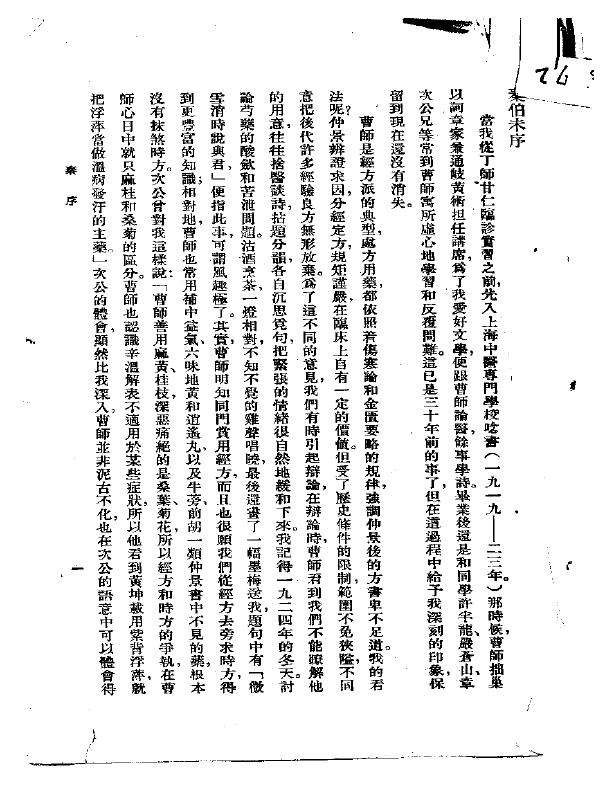 秦伯未序
當我從丁師甘仁臨診實習之前,先入上海中醫專門學校唸書(一九一九——二三年。)那時候,曹師拙巢
以詞章家兼通岐黃術担任講席,爲了我愛好文學,便跟曹師論醫餘事學詩。畢業後還是和同學許半龍、嚴蒼山、章
次公兄等常到曹師寓所虛心地學習和反覆問難。這已是三十年前的事了,但在這過程中給予我深刻的印象,保
留到現在還沒有消失。
曹師是經方派的典型,處方用藥,都依照着傷寒論和金匱要略的規律,強調仲景後的方書卑不足道。我的看
法呢?仲景辨證求因,分經定方,規矩謹嚴,在臨床上自有一定的價値。但受了歷史條件的限制,範圍不免狹隘,不同
意把後代許多經驗良方無形放棄。爲了這不同的意見,我們有時引起辯論,在辯論時曹師看到我們不能諒解他
的用意,往往捨醫談詩,拈題分韻,各自沉思覓句,把緊張的情緒很自然地緩和下來。我記得一九二四年的冬天,討
論芍藥的酸歛和苦泄問題,沽酒烹茶,一燈相對,不知不覺的雞聲唱曉,最後還畫了一幅墨梅送我,題句中有「微
雪消時說與君」便指此事,可謂風趣極了。其實,曹師明知同門賞用經方,而且也很願我們從經方去旁求時方,得
到更豐富的知識;相對地,曹師也常用補中益氣、六味地黃和逍遙丸,以及牛蒡、前胡一類仲景書中不見的藥,根本
沒有抹煞時方。次公曾對我這樣說:「曹師善用麻黃桂枝,深惡痛絕的是桑葉菊花,所以經方和時方的爭執,在曹
師心目中就只麻桂和桑菊的區分。曹師也認識辛溫解表不適用於某些症狀,所以他看到黃坤載用紫背浮萍,就
把浮萍當做溫病發汗的主藥。」次公的體會,顯然比我深入。曹師並非泥古不化,也在次公的語意中可以體會得
秦序
一